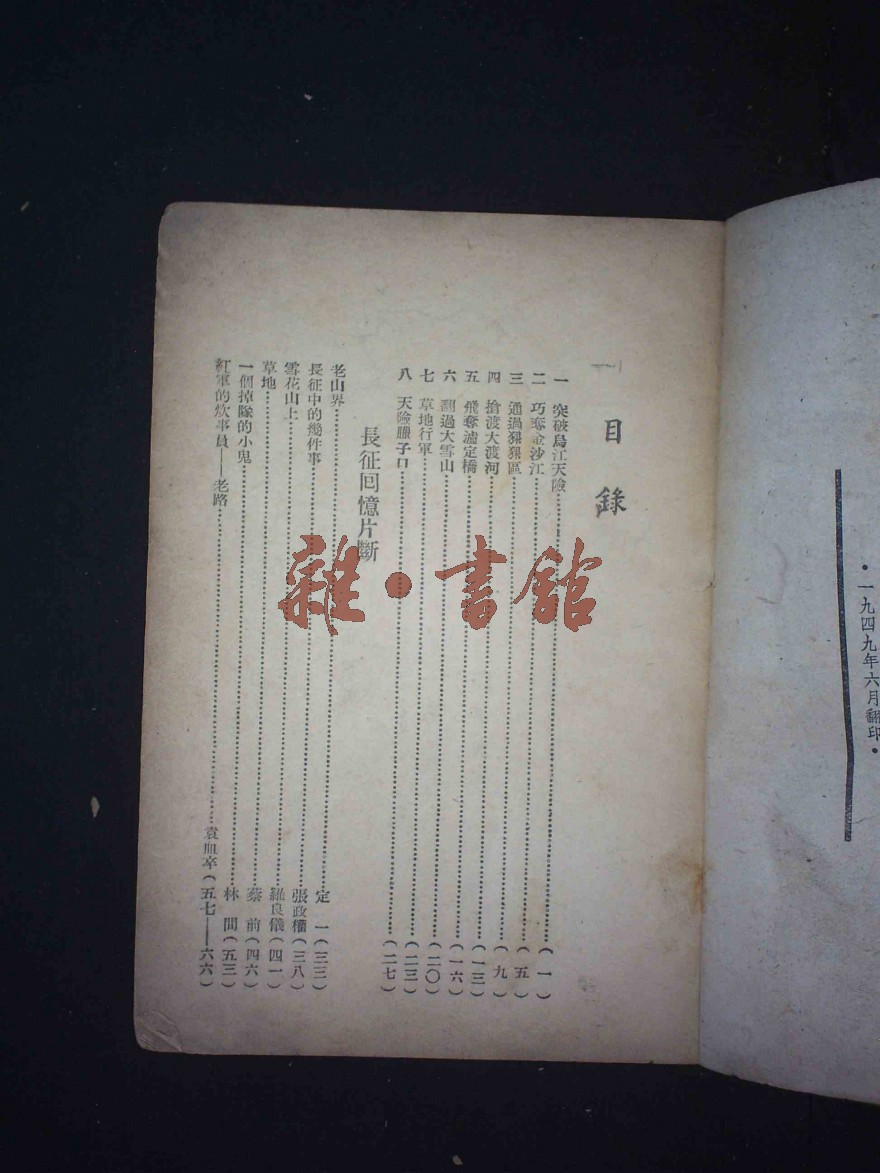 •一九四九年六月翻印•
目錄
一 突破烏江天險……(一)
二 巧奪金沙江……(五)
三 通過猓猓區……(九)
四 搶渡大渡河……(一三)
五 飛奪瀘定橋……(一六)
六 翻過大雪山……(二〇)
七 草地行軍……(二三)
八 天險臘子口……(二七)
長征回憶片斷
老山界……定一(三三)
長征中的幾件事……張政權(三八)
雪花山上……羅良儀(四一)
草地……蔡前(四六)
一個掉隊的小鬼……林間(五三)
紅軍的炊事員——老路……袁血卒(五七——六六)
雜·書館